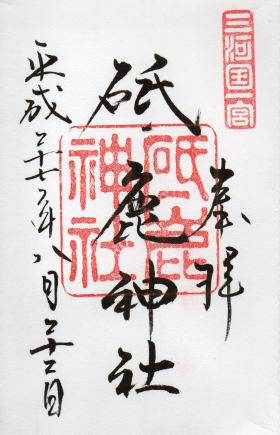 三河国一宮
奉拝
砥鹿神社
砥鹿神社
平成二十七年八月二十二日